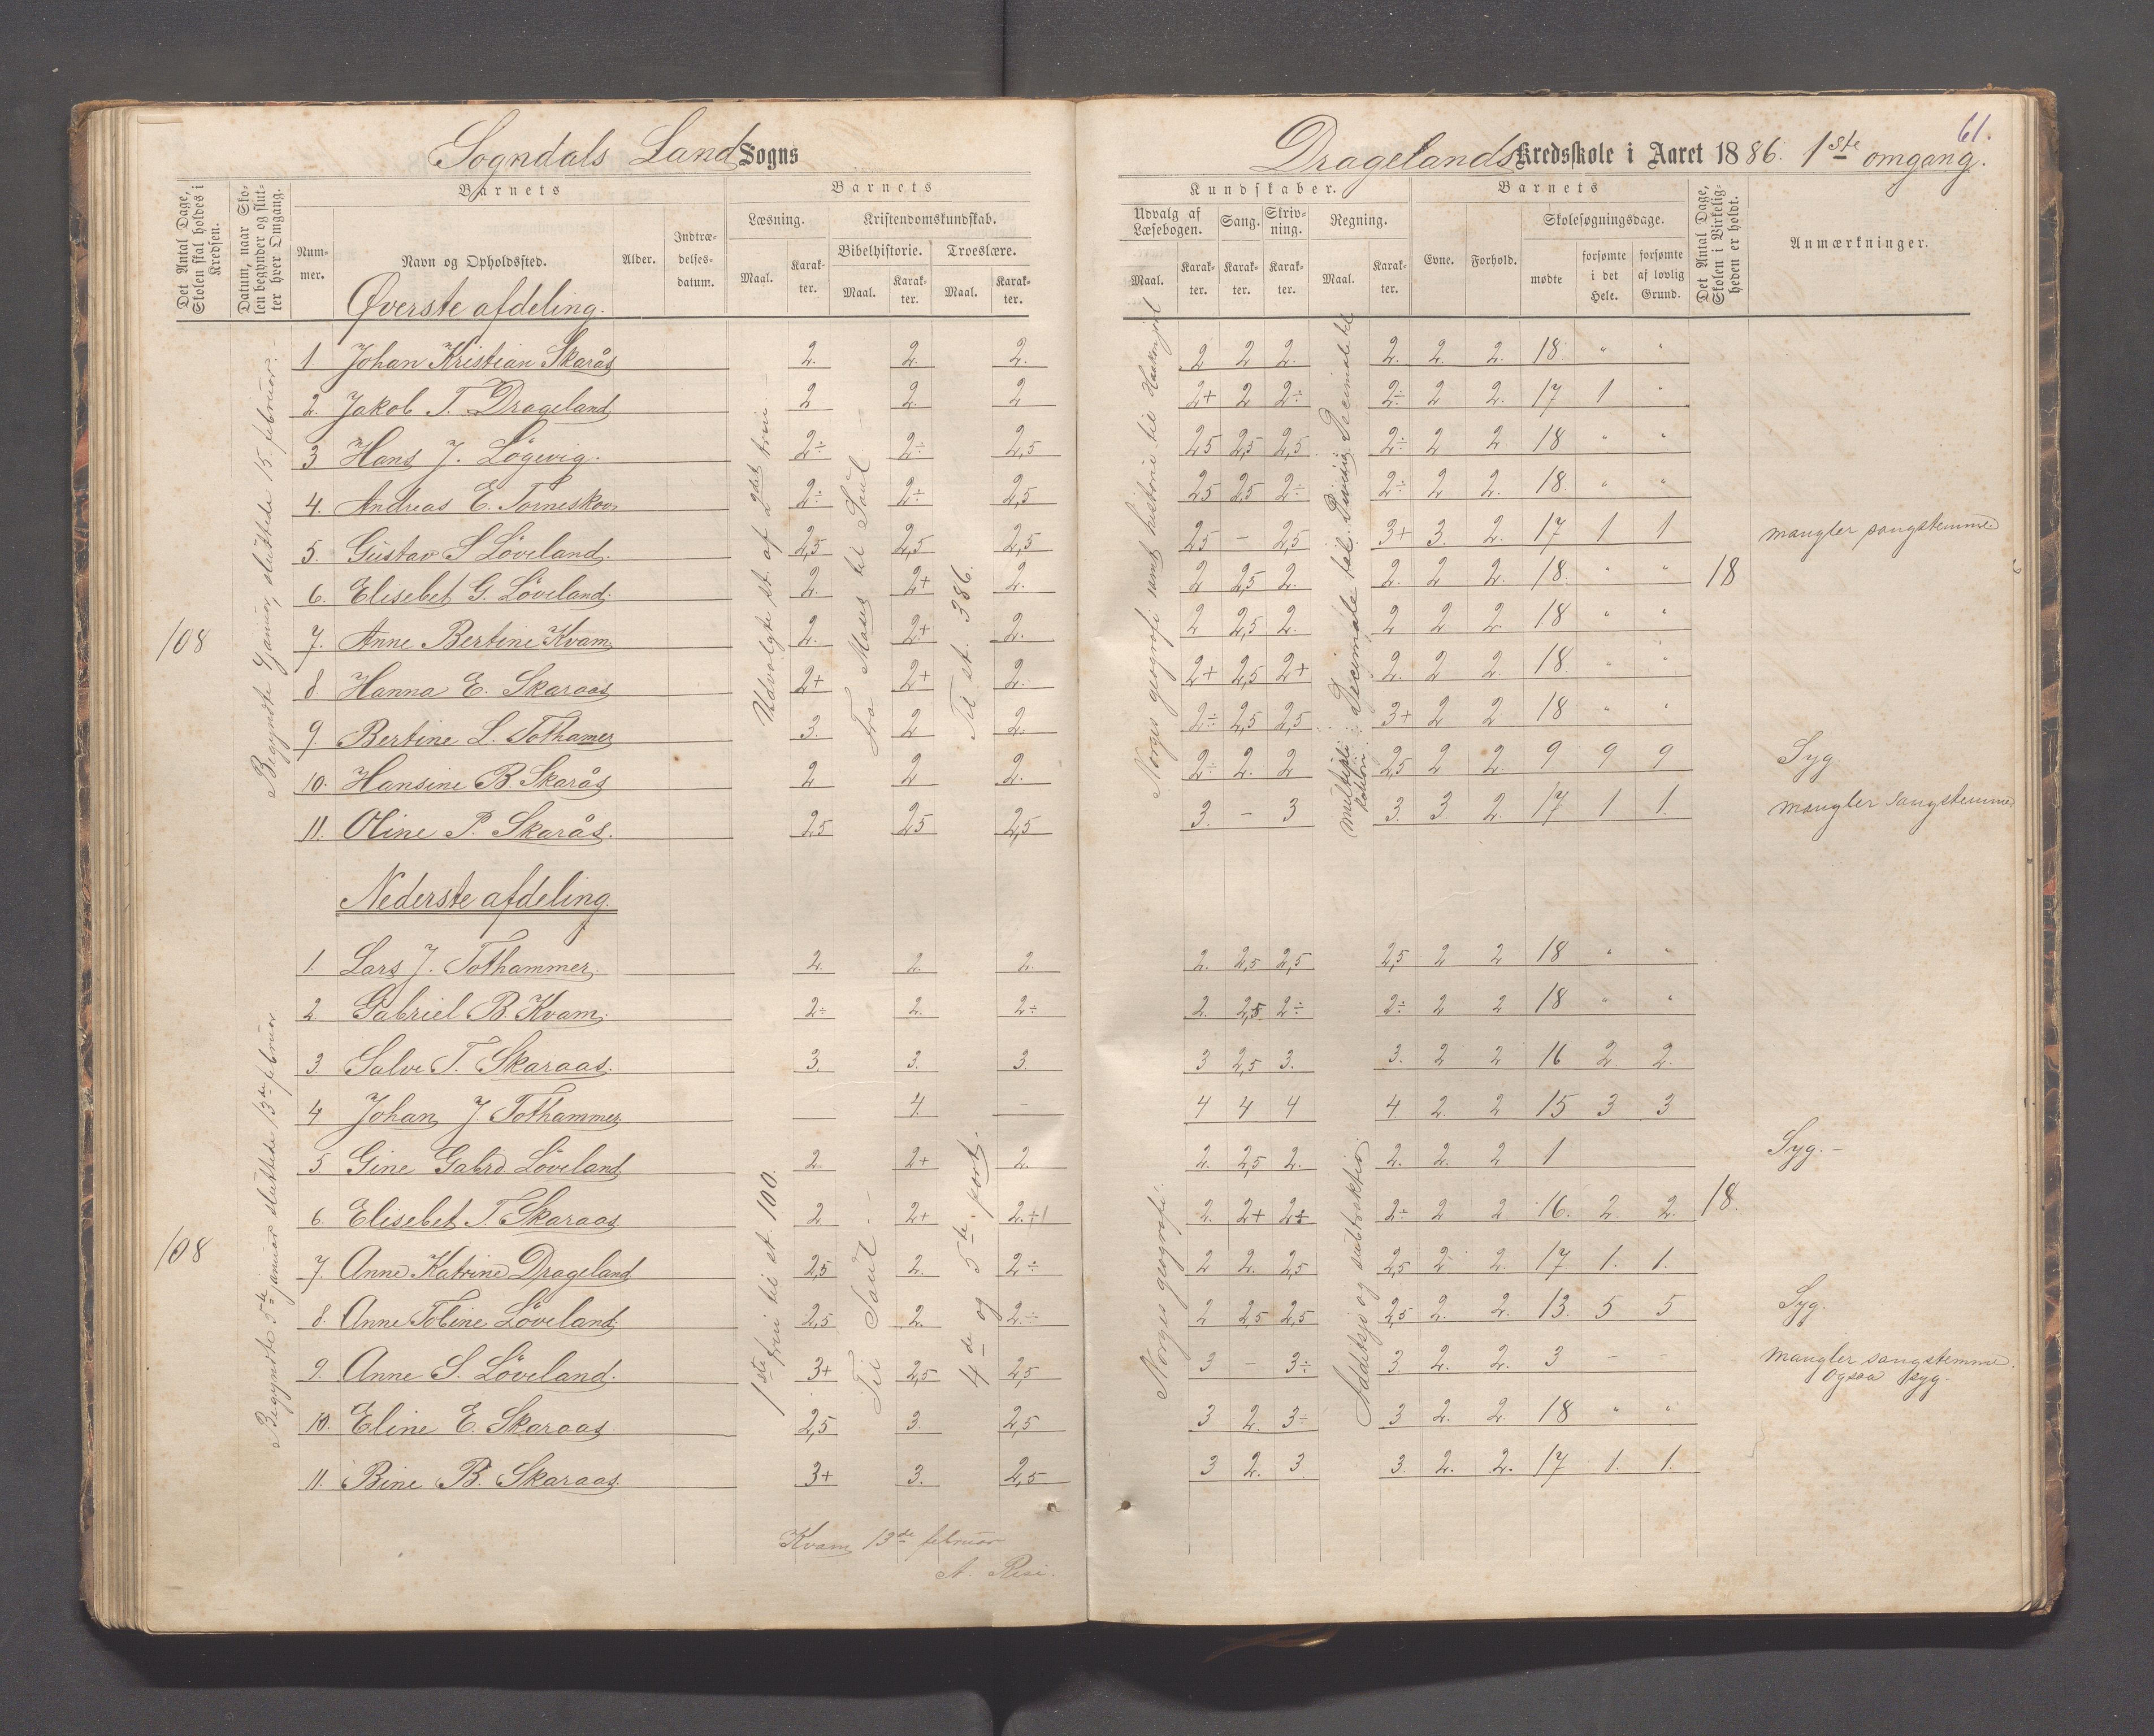 Sogndals Land Sogns
Dragelands Kredsskole i Aaret 1886. 1ste omgang.
61.
Det Antal Dage, Skolen skal holdes i Kredsen.
Datum, naar Skolen begynder og slutter hver Omgang.
Barnets
Nummer.
Navn og Opholdssted.
Alder.
Indtrædelsesdatum.
Barnets
Læsning.
Maal.
Karakter.
Kristendomskundskab.
Bibelhistorie.
Maal.
Karakter.
Troeslære.
Maal.
Karakter.
Kundskaber.
Udvalg af Læsebogen.
Maal.
Karakter.
Sang.
Karakter.
Skrivning.
Karakter.
Regning.
Maal.
Karakter.
Barnets
Evne.
Forhold.
Skolesøgningsdage.
mødte
forsømte i det Hele.
forsømte af lovlig Grund.
Det Antal Dage, Skolen i Virkeligheden er holdt.
Anmærkninger.
Øverste afdeling.
108
Begyndte 4 januar, sluttede 15. februar.
Udvalgte st. af 2det trin
Fra Moses til Saul
Til st. 386.
Norges geografi samt historie til
18
1. Johan Kristian Skarås 2. 2. 2. 2 2 2. 2. 2. 2. 18 " "
2. Jakob T. Drageland 2 2. 2 2+ 2 2÷ 2÷ 2 2. 17 1 "
3 Hans J. Lögevig. 2÷ 2÷ 2,5 25 2,5 2,5 2÷ 2 2 18 " "
4. Andreas E. Torneskov 2÷ 2÷ 2,5 25 25 2÷ 2÷ 2 2. 18. " "
5. Gustav S Löveland. 2,5 2,5 2,5 25 – 2,5 3+ 3. 2. 17 1 1 mangler sangstemme
6. Elisebet G. Löveland. 2. 2+ 2. 2 2,5 2. 2. 2 2. 18. " "
7. Anne Bertine Kvam 2. 2+ 2. 2 2,5 2. 2 2 2. 18 " "
8. Hanna E. Skaraas 2+ 2+ 2. 2+ 2,5 2+ 2. 2 2. 18. " "
9. Bertine L. Tothamer 3. 2 2. 2÷ 2,5 2,5 3+ 2 2 18 " "
10. Hansine B. Skarås 2 2 2. 2÷ 2. 2 2,5 2 2. 9 9 9 Syg
11. Oline P. Skarås. 2,5 25 2,5 3. – 3 3. 3. 2. 17 1 1. mangler sangstemme
Nederste afdeling.
108
Begyndte 5te januar sluttede 13de februar
1ste trin til st. 100.
Til Saul –
4de og 5te part.
Norges geografi.
Addetsjo og subtraktion
18.
1. Lars J. Tothammer. 2. 2. 2. 2. 2,5 2,5 2,5 2 2 18 " "
2 Gabriel B. Kvam. 2÷ 2. 2÷ 2. 2,5 2÷ 2÷ 2 2 18 " "
3. Salve T. Skaraas. 3. 3. 3. 3 2,5 3. 3. 2 2 16 2 2.
4 Johan J. Tothammer 4. – 4 4 4 4 2. 2 15 3 3
5. Gine Gabrd. Löveland 2. 2+ 2. 2. 2,5 2. 2. 2. 2 1 Syg. –
6. Elisebet T. Skaraas 2 2+ 2.÷1 2. 2+ 2÷ 2÷ 2 2 16. 2. 2.
7. Anne Katrine Drageland 2,5 2. 2÷ 2 2. 2,5 2,5 2 2. 17 1. 1.
8. Anne Toline Löveland. 2,5 2. 2÷ 2 2,5 2,5 2,5 2. 2. 13. 5 5 Syg.
9. Anne S. Löveland. 3+ 2,5 2,5 3 – 3÷ 3. 2. 2. 3 – – Mangler sangstemme. Ogsaa syg.
10. Eline E. Skaraas 2,5 3. 2,5 3 2. 3÷ 3 2. 2. 18 " "
11. Bine B. Skaraas. 3+ 3. 2,5 3 2. 3 3. 2. 2. 17 1. 1.
Kvam 13de februar
A. Risi.